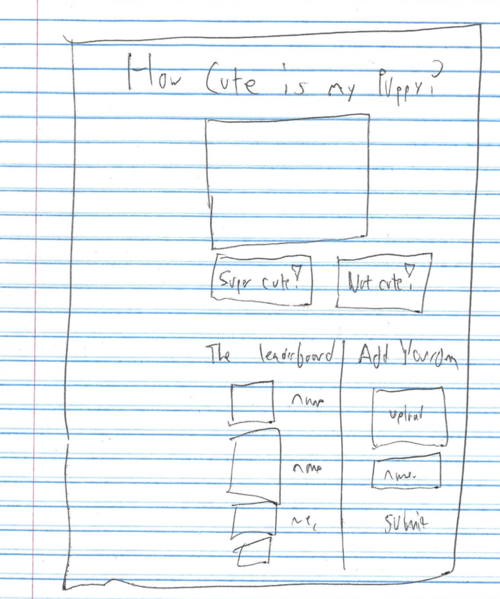 How Cute is my Puppy?
Super cute!
Not cute!
The leaderboard
Add Your own
name
upload
name
name.
submit